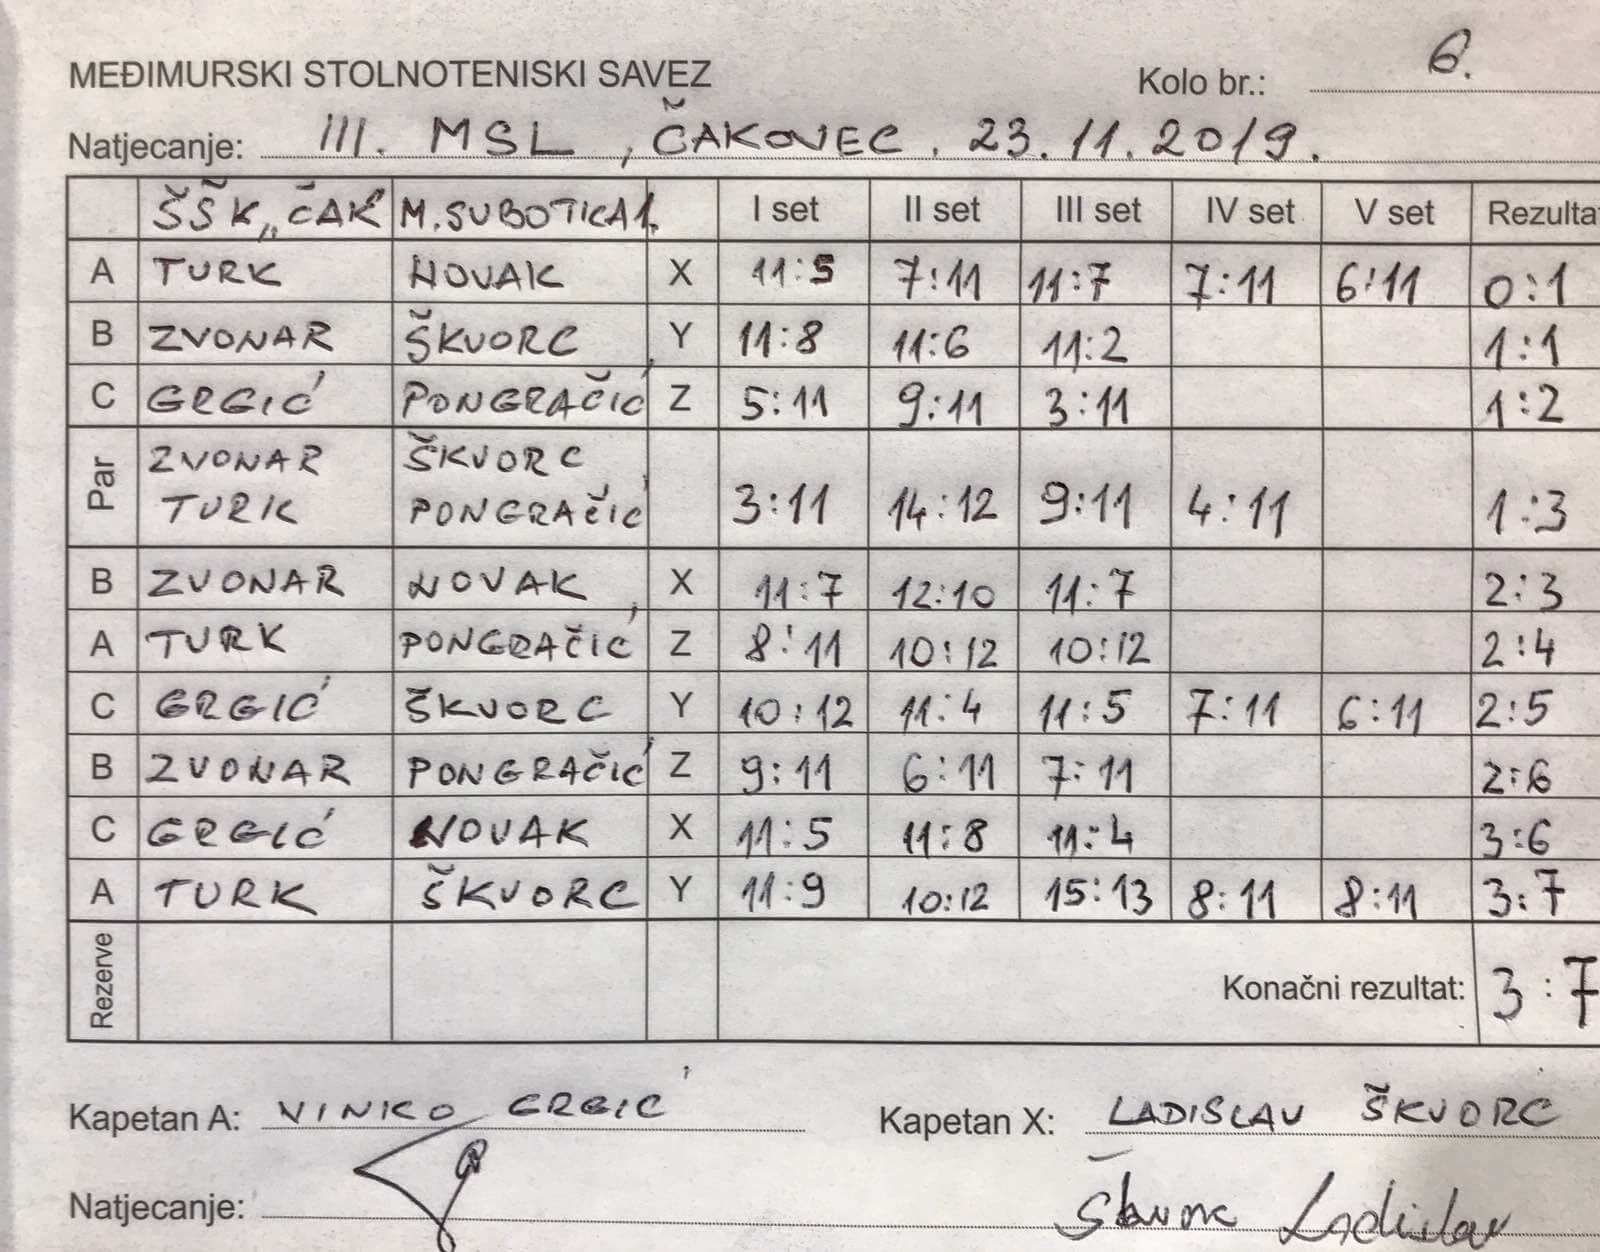 MEĐIMURSKI STOLNOTENISKI SAVEZ
Kolo br.: 6.
Natjecanje: III. MSL, ČAKOVEC, 23.11.2019.
ŠŠK „ČAK" M.SUBOTICA 1. I set II set III set IV set V set Rezultat
A TURK NOVAK X 11:5 7:11 11:7 7:11 6:11 0:1
B ZVONAR ŠKVORC Y 11:8 11:6 11:2 1:1
C GRGIĆ PONGRAČIĆ Z 5:11 9:11 3:11 1:2
Par ZVONAR ŠKVORC
TURK PONGRAČIĆ 3:11 14:12 9:11 4:11 1:3
B ZVONAR NOVAK X 11:7 12:10 11:7 2:3
A TURK PONGRAČIĆ Z 8:11 10:12 10:12 2:4
C GRGIĆ ŠKVORC Y 10:12 11:4 11:5 7:11 6:11 2:5
B ZVONAR PONGRAČIĆ Z 9:11 6:11 7:11 2:6
C GRGIĆ NOVAK X 11:5 11:8 11:4 3:6
A TURK ŠKVORC Y 11:9 10:12 15:13 8:11 8:11 3:7
Rezerve Konačni rezultat: 3:7
Kapetan A: VINKO GRGIĆ Kapetan X: LADISLAV ŠKVORC
Natjecanje: Škvorc Ladislav